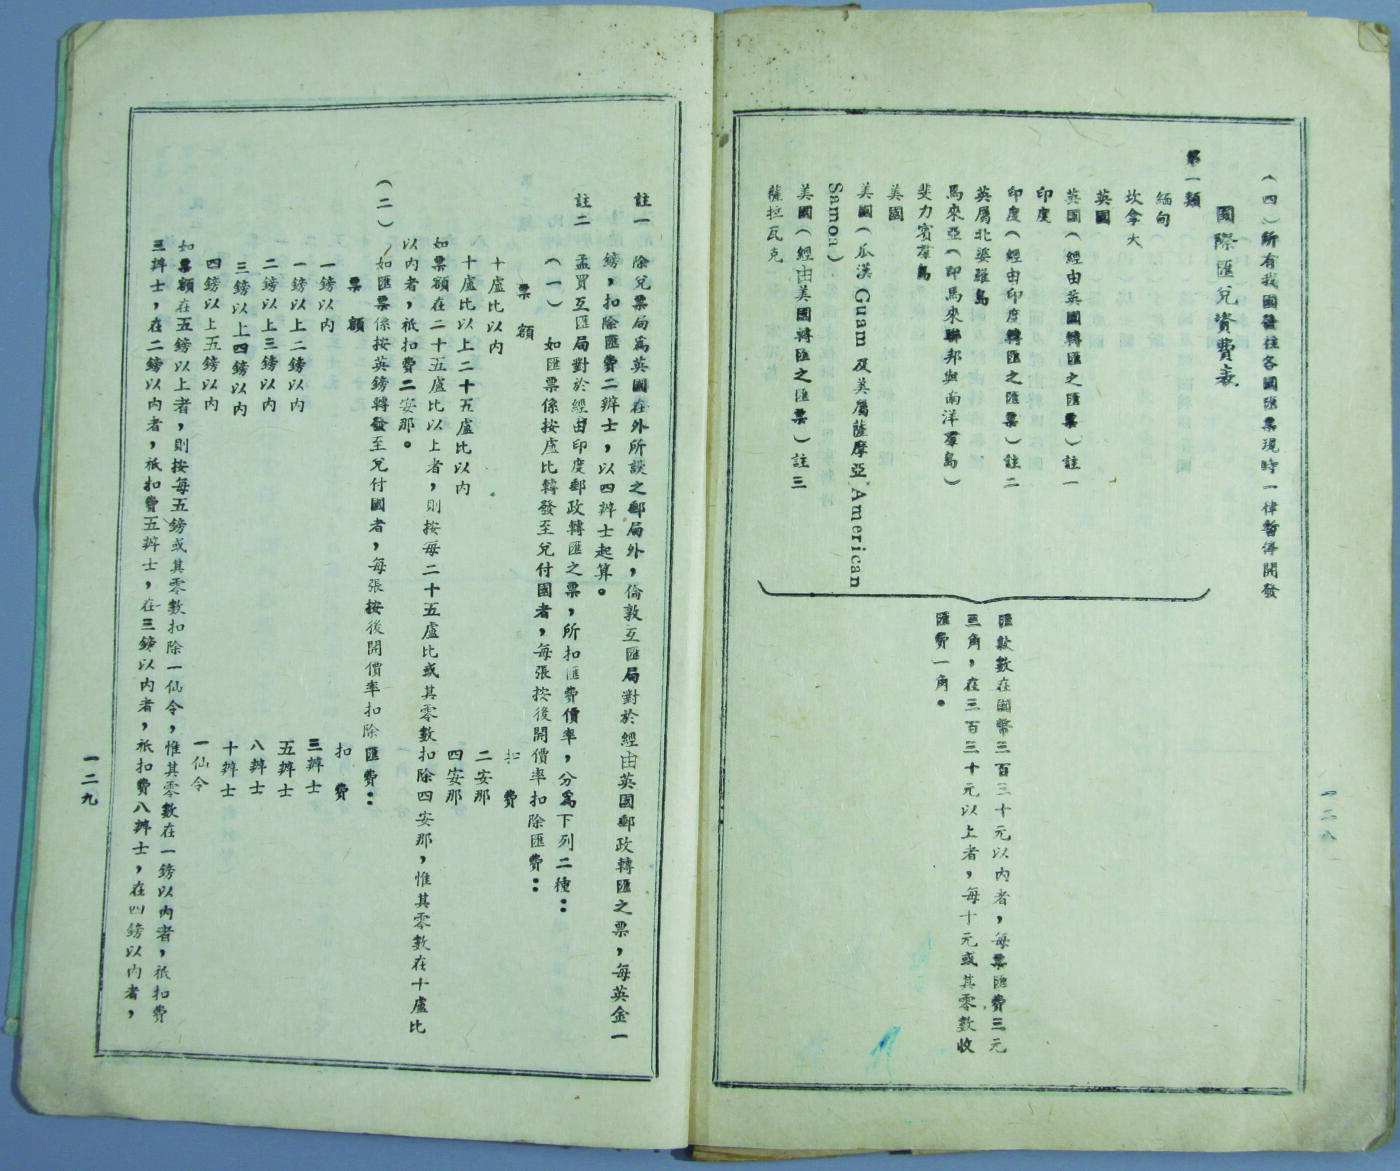 (四)所有我國發往各國匯票現時一律暫停開發
國際匯兌資費表
第一類
緬甸
坎拿大
英國
英國(經由英國轉匯之匯票)註一
印度
印度(經由印度轉匯之匯票)註二
英屬北婆羅島
馬來亞(即馬來聯邦與南洋羣島)
斐力賓羣島
美國
美國(瓜漢 Guam 及美屬薩摩亞 American
Samoa)
美國(經由美國轉匯之匯票)註三
薩拉瓦克
匯款數在國幣三百三十元以內者,每票匯費三元
三角,在三百三十元以上者,每十元或其零數收
匯費一角。
一二八
註一 除兌票局為英國在外所設之郵局外,倫敦互匯局對於經由英國郵政轉匯之票,每英金一
鎊,扣除匯費二辨士,以四辨士起算。
註二 孟買互匯局對於經由印度郵政轉匯之票,所扣匯費價率,分為下列二種:
(一) 如匯票係按盧比轉發至兌付國者,每張按後開價率扣除匯費:
票額 扣費
十盧比以內 二安那
十盧比以上二十五盧比以內 四安那
如票額在二十五盧比以上者,則按每二十五盧比或其零數扣除四安那,惟其零數在十盧比
以內者,祇扣費二安那。
(二) 如匯票係按英鎊轉發至兌付國者,每張按後開價率扣除匯費:
票額 扣費
一鎊以內 三辨士
一鎊以上二鎊以內 五辨士
二鎊以上三鎊以內 八辨士
三鎊以上四鎊以內 十辨士
四鎊以上五鎊以內 一仙令
如票額在五鎊以上者,則按每五鎊或其零數扣除一仙令,惟其零數在一鎊以內者,祇扣費
三辨士,在二鎊以內者,祇扣費五辨士,在三鎊以內者,祇扣費八辨士,在四鎊以內者,
一二九